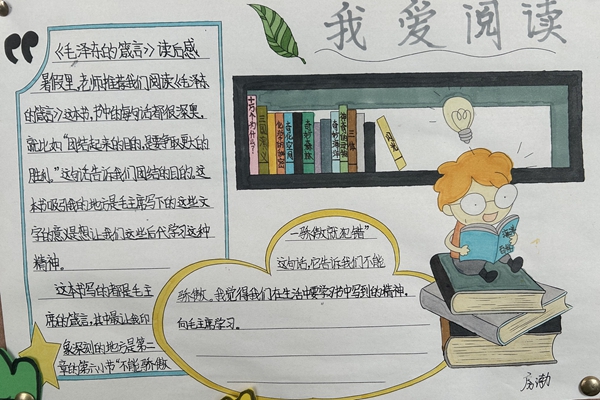 我爱阅读
《毛泽东的箴言》读后感
暑假里,老师推荐我们阅读《毛泽东
的箴言》这本书,书中的每句话都很深奥,
就比如“团结起来的目的,是要争取更大的
胜利。”这句话告诉我们团结的目的,这
本书吸引我的地方是毛主席写下的这些文
字的意义是想让我们这些后代学习这种
精神。
这本书写的都是毛主
席的箴言,其中最让我印
象深刻的地方是第二
章的第六小节“不能骄傲
一骄傲就犯错”
这句话,它告诉我们不能
骄傲。我觉得我们在生活中要学习书中写到的精神,
向毛主席学习。
十万个为什么?
三国演义